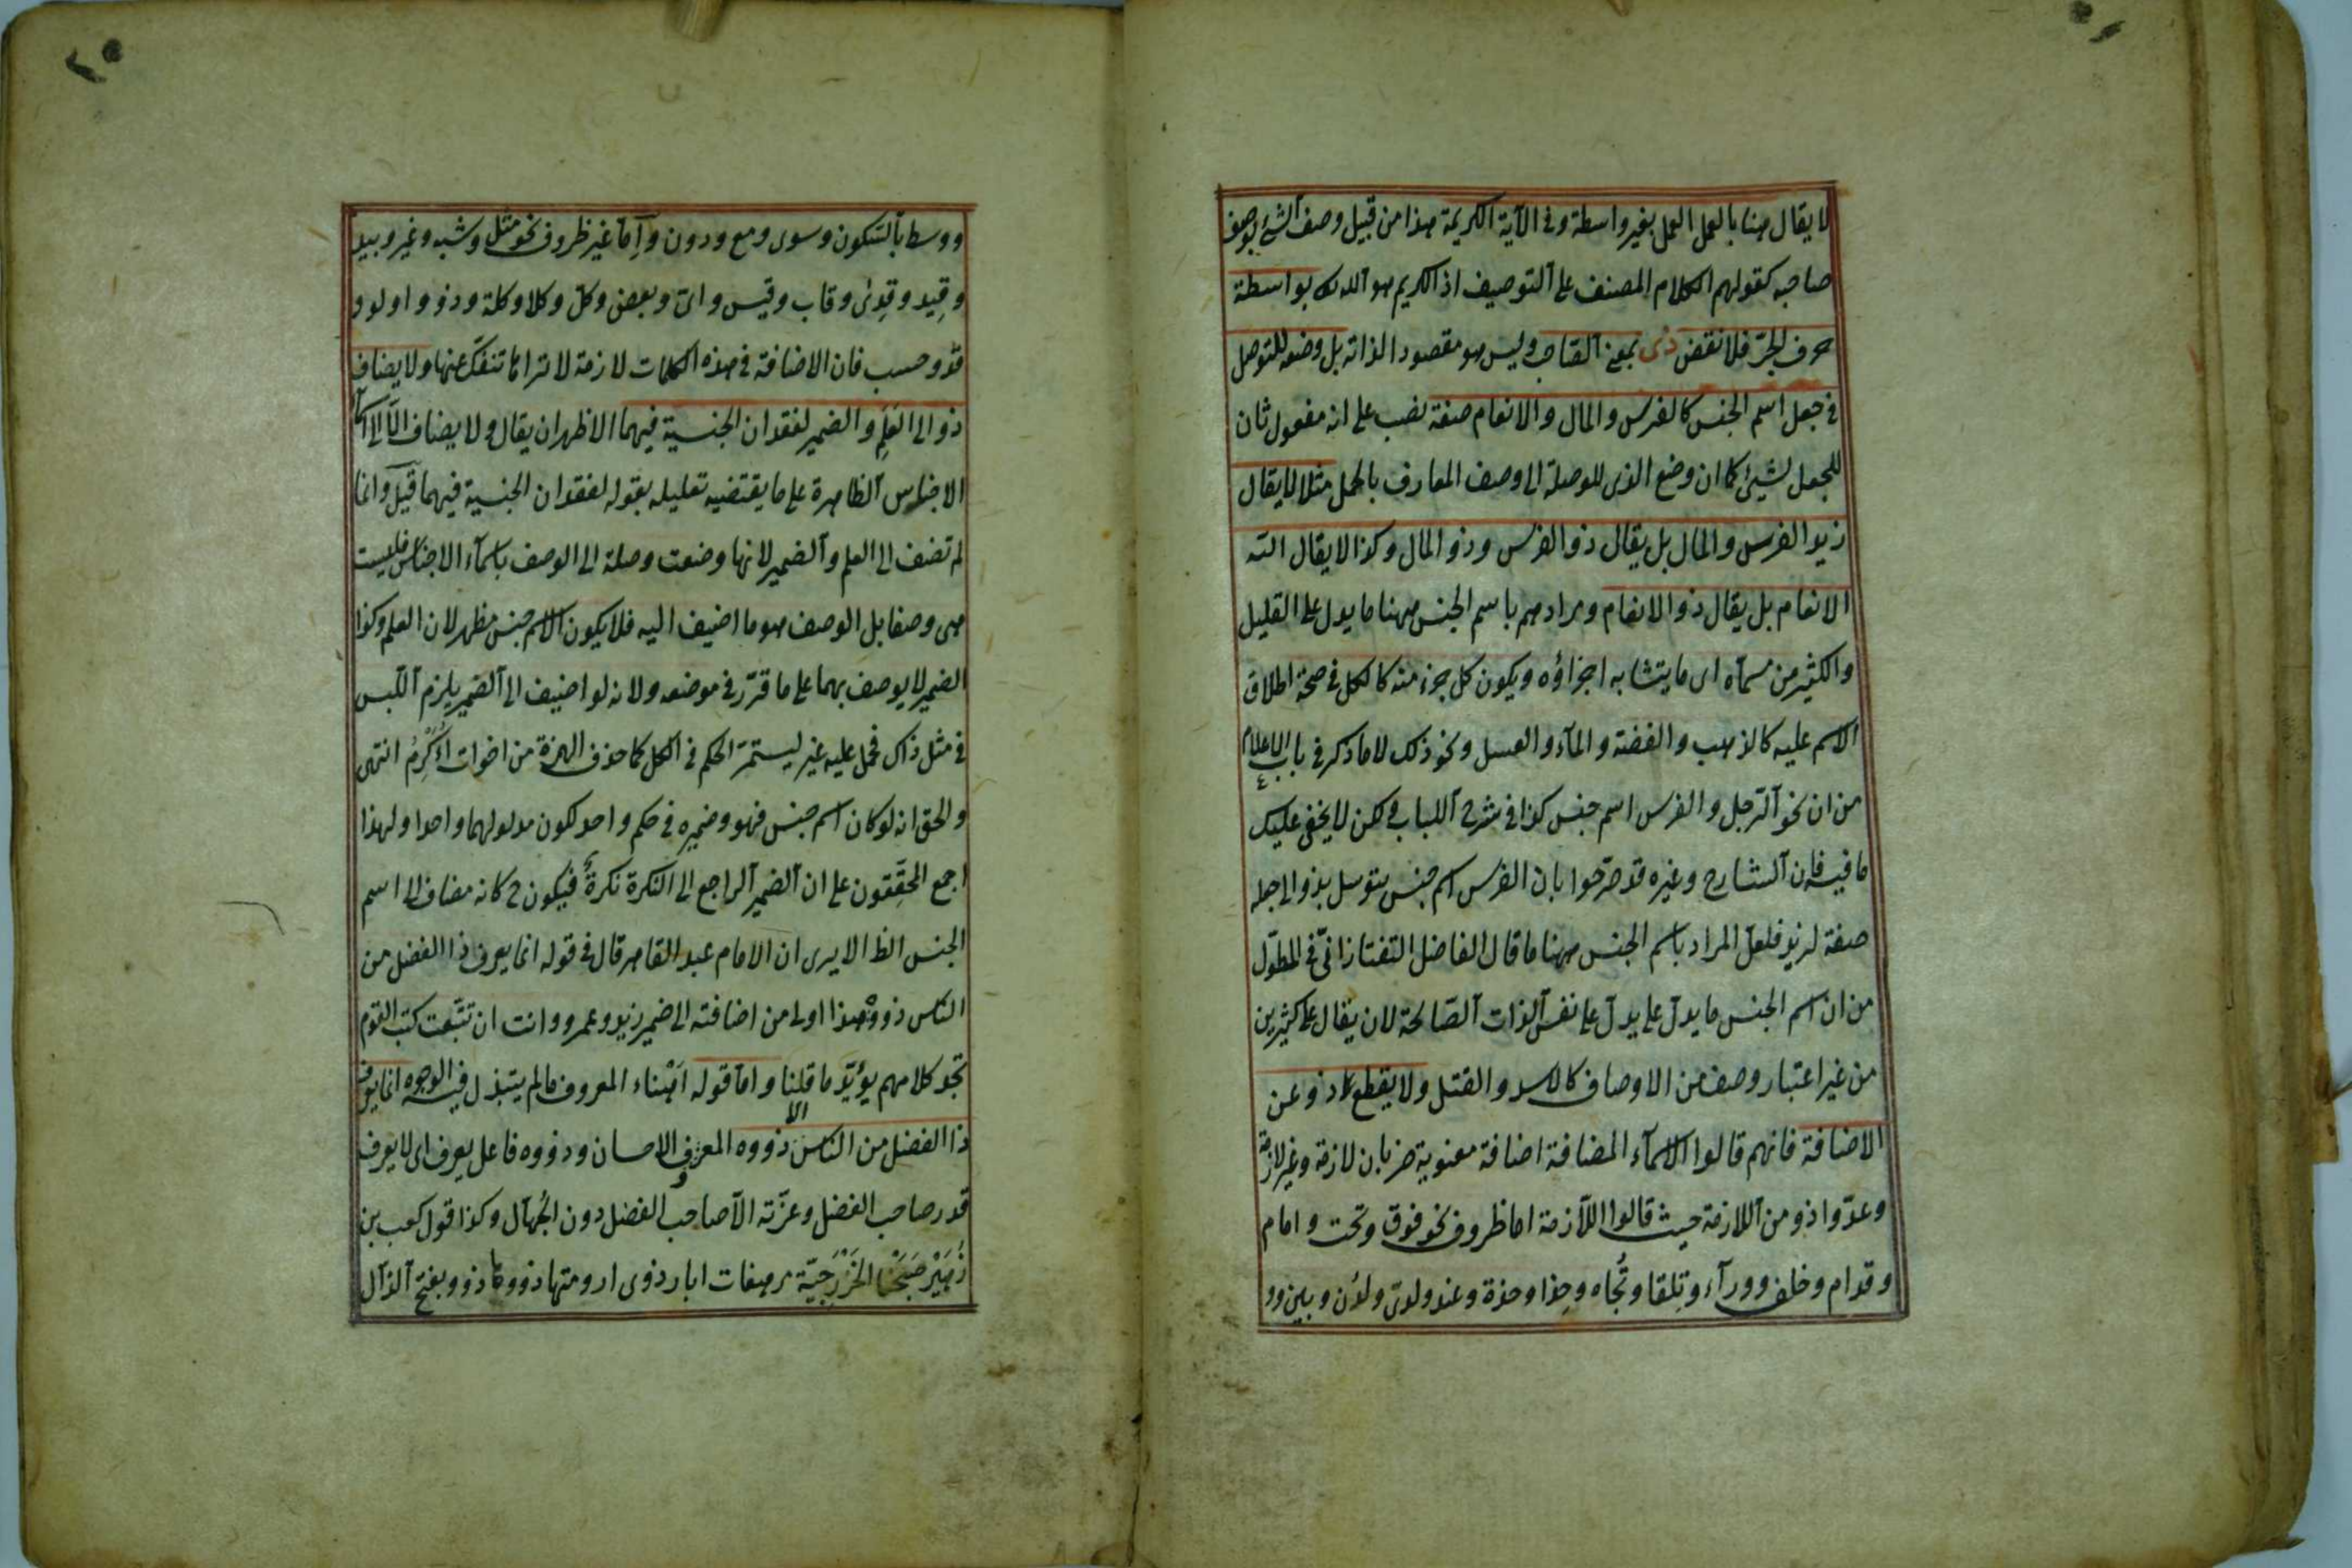 لا يقال هنا بالعمل العمل بغير واسطة وفى الآية الكريمة هذا من قبيل وصف الشئ بوصف
صاحبه كقولهم الكلام المصنف على التوصيف اذ الكريم هو الله بواسطة
حرف الجرّ فلا نقض ذى بمعنى الصاحب وليس هو مقصود الذاته بل وضعه للتوصل
فى جعل اسم الجنس كالفرس والمال والانعام صفة نصب على انه مفعول ثان
للجعل لشيئ كما ان وضع الذى للوصلة الى وصف المعارف بالجمل مثلا لا يقال
زيد الفرس والمال بل يقال ذو الفرس وذو المال وكذا لا يقال الله
الانعام بل يقال ذو الانعام ومرادهم باسم الجنس ههنا ما يدل على القليل
والكثير من مسمّاه اى ما يتشابه اجزاؤه ويكون كل جزء منه كالكل فى صحة اطلاق
الاسم عليه كالذهب والفضة والمآء والعسل ونحو ذلك لا ما ذكر فى باب الاعلام
من ان نحو الرّجل والفرس اسم جنس كذا فى شرح اللباب لكن لا يخفى عليك
ما فيه فان الشارح وغيره قد صرّحوا بان الفرس اسم جنس يتوسل بذو الى جعله
صفة لزيد فلعل المراد باسم الجنس ههنا ما قال الفاضل التفتازانىّ فى المطوّل
من ان اسم الجنس ما يدلّ على يدلّ على نفس الذات الصّالحة لان يقال على كثيرين
من غير اعتبار وصف من الاوصاف كالاسد والقتل ولا يقطع ذو عن
الاضافة فانهم قالوا الاسمآء المضافة اضافة معنوية ضربان لازمة وغير لازمة
وعدّوا ذو من اللازمة حيث قالوا اللّازمة اما ظروف نحو فوق وتحت وامام
وقدام وخلف وورآء وتِلقا وتُجاه وحِذا وحذة وعند ولدى ولدُن وبين وو
ووسط بالسّكون وسوى ومع ودون وإمّا غير ظروف نحو مثل وشبه وغير وبيد
وقِيد وقِدىٰ وقاب وقيس واىّ وبعض وكلّ وكلا وكلتة وذو واولو و
قدْ وحسب فان الاضافة فى هذه الكلمات لازمة لا تراها تنفكّ عنها ولا يضاف
ذو الى العَلَمِ والضمير لفقدان الجنسية فيهما الاظهر ان يقال ولا يضاف الّا الى اسمآء
الاجناس الظاهرة على ما يقتضيه تعليله بقوله لفقدان الجنسية فيهما قيل وانما
لم تضف الى العلم والضمير لانها وضعت وصلة الى الوصف باسمآء الاجناس فليست
هى وصفا بل الوصف هو ما اضيف اليه فلا يكون الا اسم جنس مظهر لان العلم وكذا
الضمير لا يوصف بهما على ما قرّر فى موضعه ولانه لو اضيف الى الضمير يلزم اللّبس
فى مثل ذاك فحمل عليه غير ليستمرّ الحكم فى الكل كما حذف الهمزة من اخوات اُؤَكْرِمُ انتهى
والحق انه لو كان اسم جنس فهو وضميره فى حكم واحد لكون مدلولهما واحدا ولهذا
اجمع المحقّقون على ان الضمير الراجع الى النكرة نكرةٌ فيكون ح كانه مضاف الى اسم
الجنس الظ الا يرى ان الامام عبد القاهر قال فى قوله انما يعرف ذا الفضل من
الناس ذووه هذا اولى من اضافته الى ضمير زيد وعمرو وانت ان تتبّعت كتب القوم
تجد كلامهم يؤيّد ما قلنا وامّا قوله اَهْناء المعروف ما لم يتبذل فيه الوجوه انما يعرف
ذا الفضل من الناس ذووه المعروف الاحسان وذووه فاعل يعرف اى لا يعرف
قدر صاحب الفضل وعزّته الّا صاحب الفضل دون الجُهّال وكذا قول كعب بن
زُهَيْر صَبَحْنا الخَزْرَجيّة مرهفات ابار ذوى ارومتها ذووها ذوو بفتح الذّال